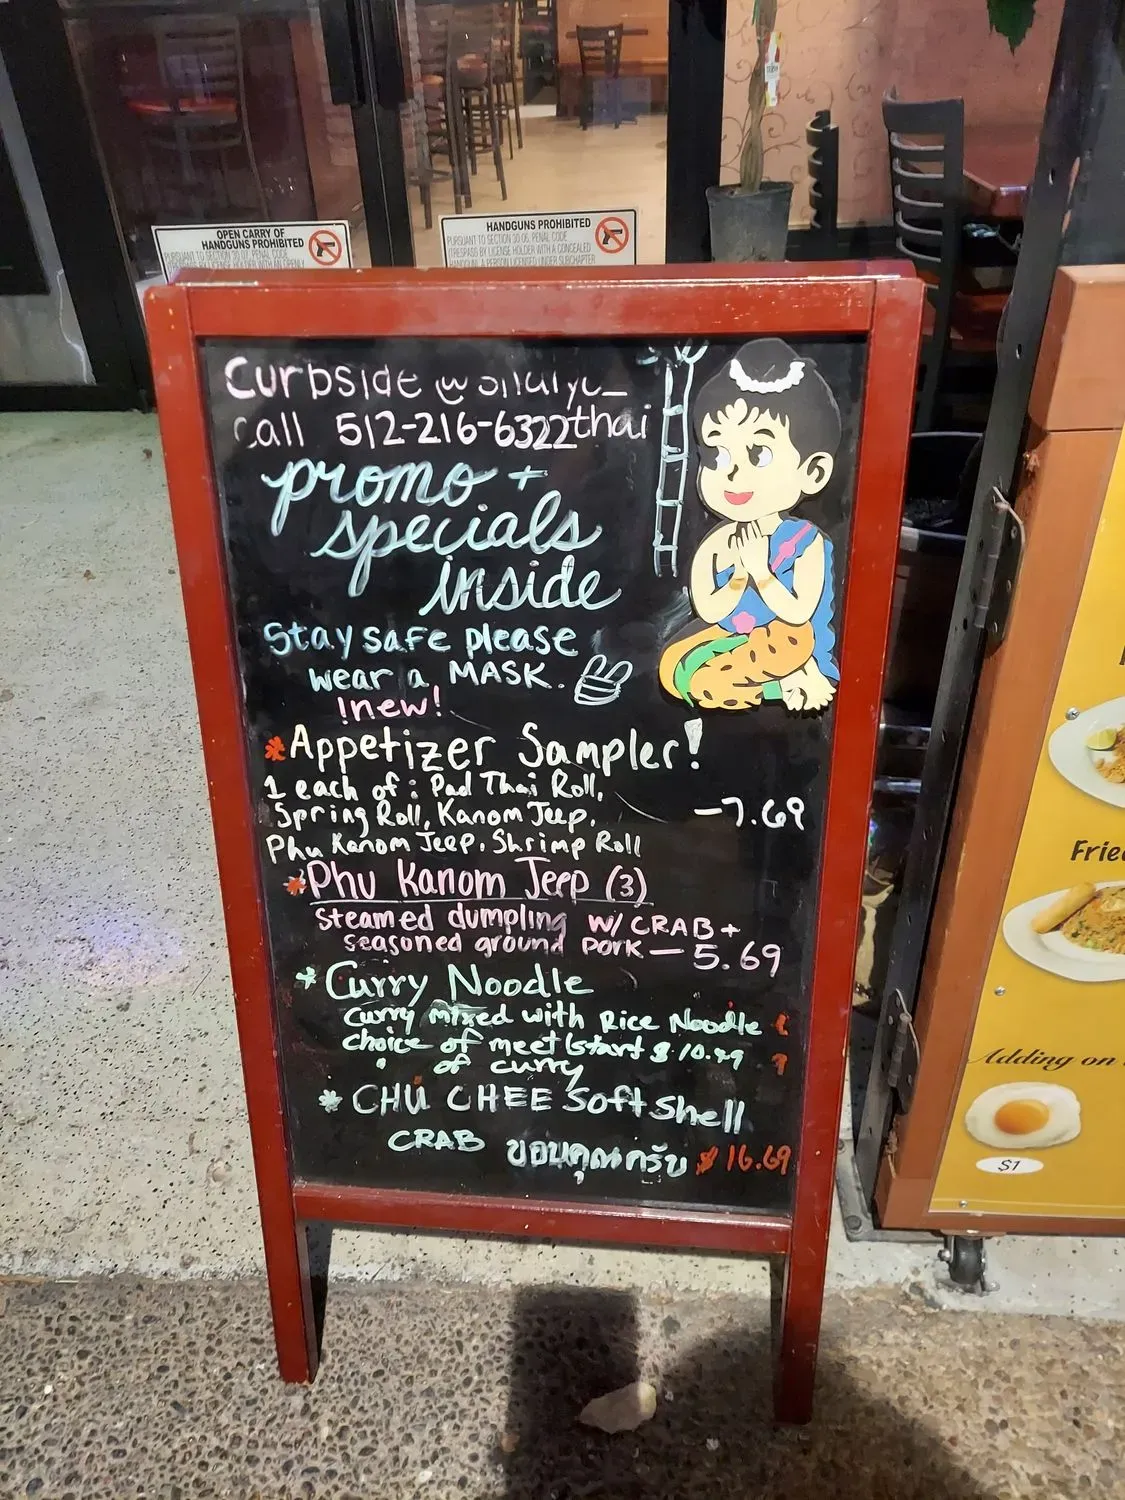 OPEN CARRY OF
HANDGUNS PROHIBITED
HANDGUNS PROHIBITED
PURSUANT TO SECTION 30.06, PENAL CODE
(TRESPASS BY LICENSE HOLDER WITH A CONCEALED
HANDGUN), A PERSON LICENSED UNDER SUBCHAPTER
Curbside
call 512-216-6322 thai
promo +
specials
inside
Stay safe please
wear a MASK.
!new!
*Appetizer Sampler!
1 each of: Pad Thai Roll,
Spring Roll, Kanom Jeep,
-7.69
Phu Kanom Jeep, Shrimp Roll
*Phu Kanom Jeep (3)
steamed dumpling w/ CRAB +
seasoned ground pork - 5.69
*Curry Noodle
curry mixed with Rice Noodle
choice of meet (start $
of curry
* CHU CHEE Soft Shell
CRAB ขอบคุณครับ $16.69
Adding on
$1